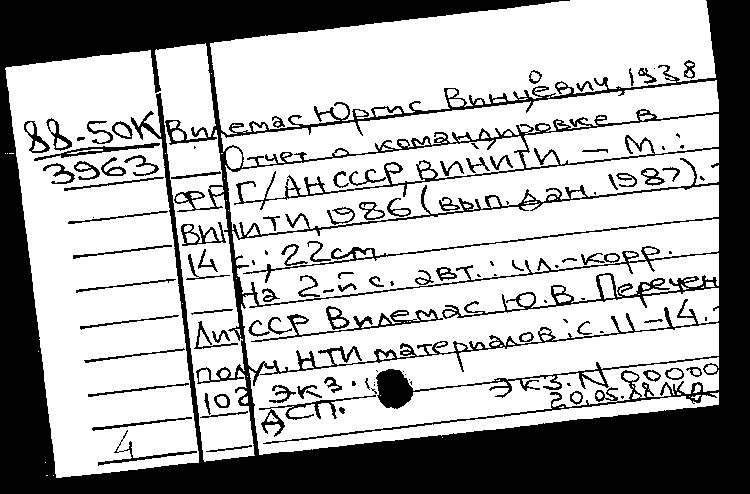 88-50К
3963
Вилемас, Юргис Винцевич, 1938
Отчет о командировке в
ФРГ/АН СССР, ВИНИТИ. – М.:
ВИНИТИ, 1986 (вып. дан. 1987). -
14 с.; 22cm.
На 2-й с. авт.: чл.-корр.
ЛитССР Вилемас Ю.В. Перечен
получ. НТИ материалов: с. 11-14. -
102 экз.
экз. N 00000
ДСП.
20.05.88
4